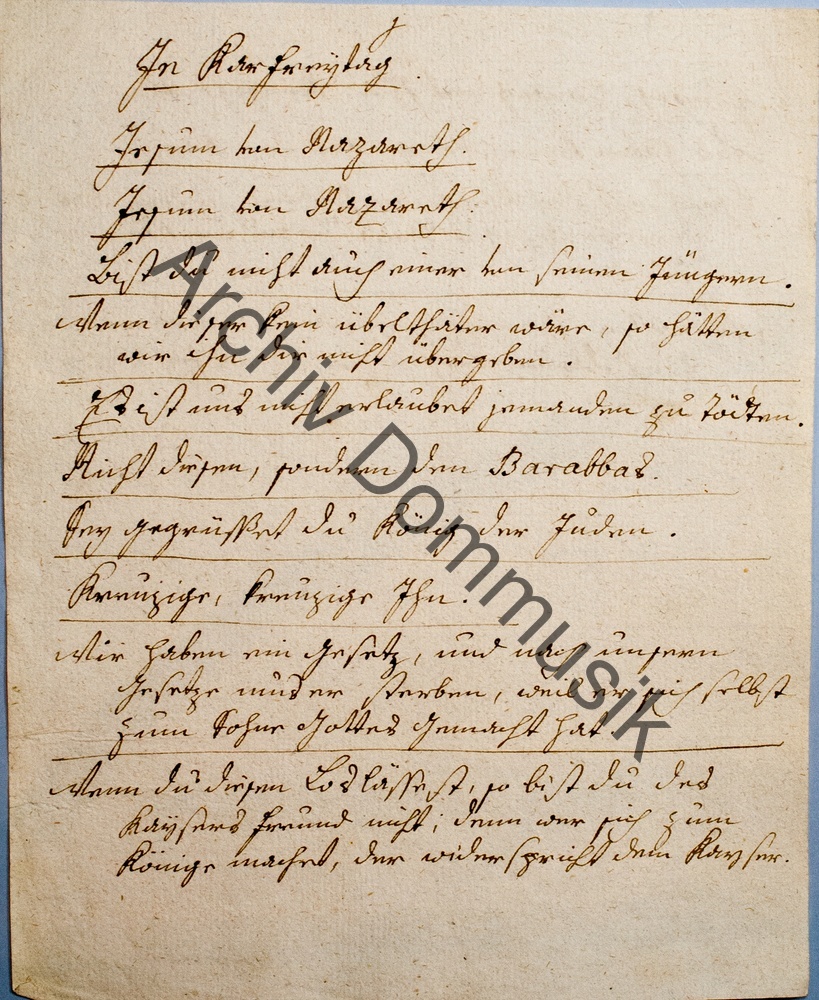 In Karfreytag
Jesum von Nazareth.
Jesum von Nazareth.
Bist du nicht auch einer von seinen Jüngern.
Wenn dieser kein übelthäter wäre, so hätten
wir ihn dir nicht übergeben.
Es ist uns nicht erlaubet jemanden zu tödten.
Nicht diesen, sondern den Barabbas.
Sey gegrüsset du König der Juden.
Kreuzige, kreuzige Ihn.
Wir haben ein Gesetz, und nach unsern
Gesetze mus er sterben, weil er sich selbst
zum Sohne Gottes gemacht hat
Wenn du diesen Loslässest, so bist du des
Kaysers freund nicht; denn wer sich zum
Könige machet, der widerspricht dem Kayser.
Archiv Dommusik